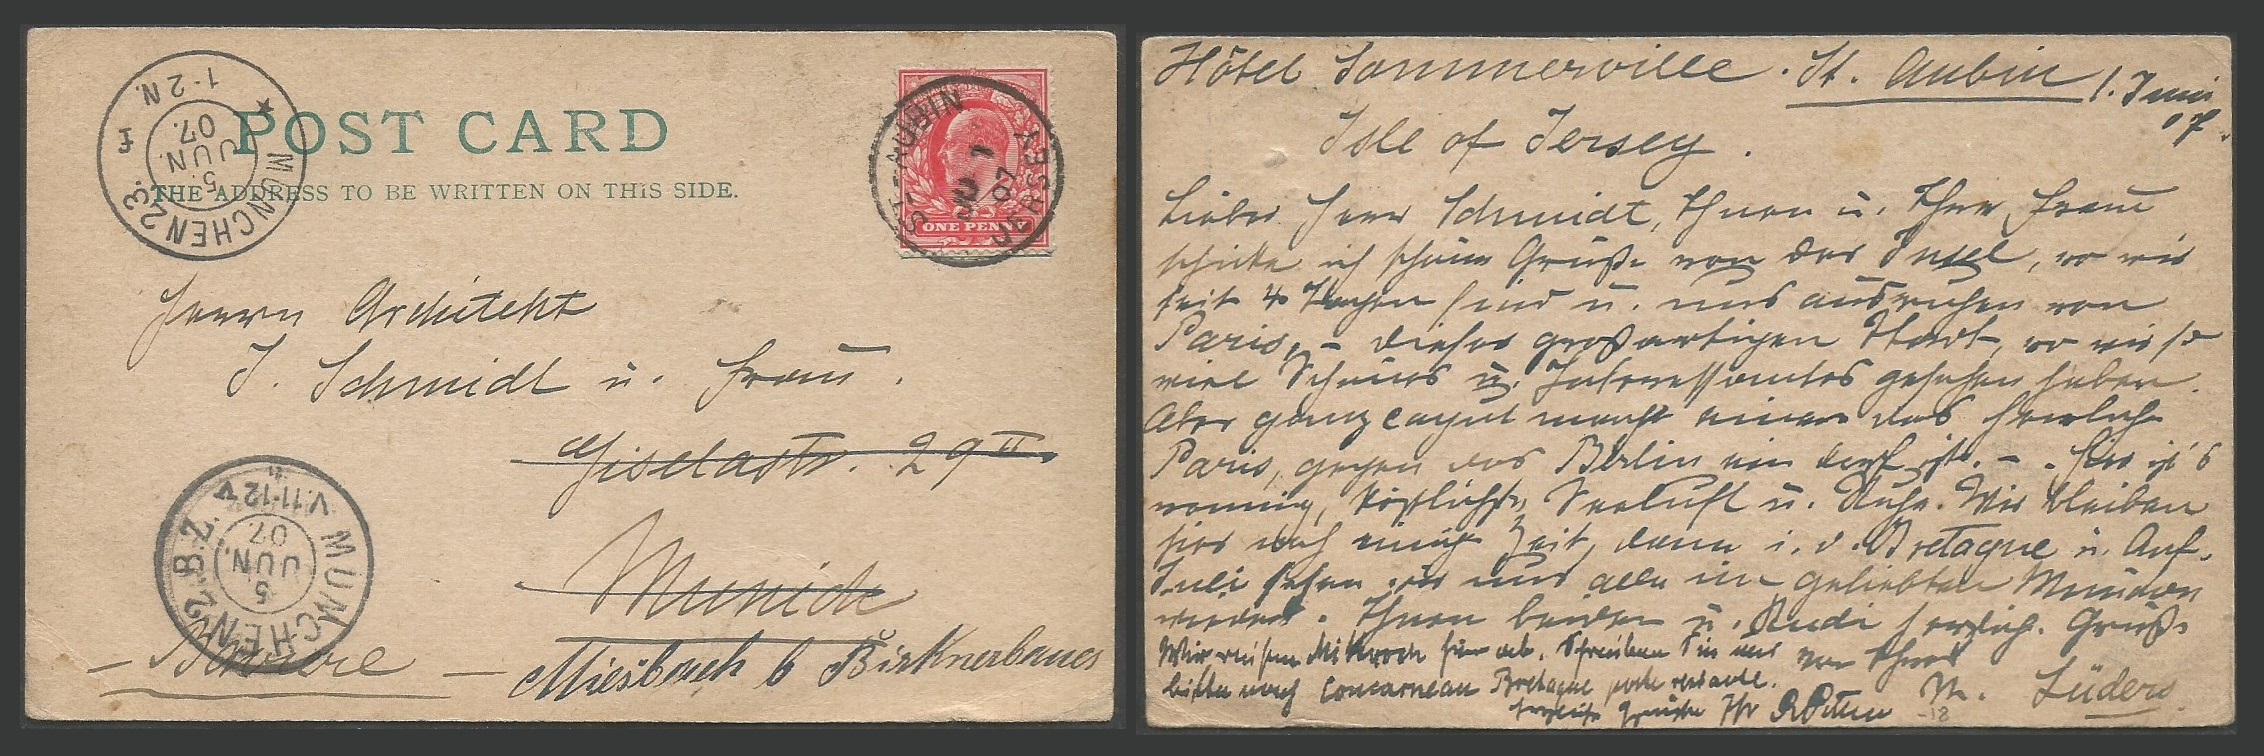 POST CARD
THE ADDRESS TO BE WRITTEN ON THIS SIDE.
MÜNCHEN 23.
5. JUN. 07.
1-2 N.
ST.-AUBIN
JU 1 07
JERSEY
ONE PENNY
Herrn Architekt
J. Schmidt u. Frau.
Giselastr. 29 II
Munich
Bavière
Miesbach b Birknerbauer
MÜNCHEN 2 B.Z.
5 JUN. 07
V.11-12 V
Hôtel Sommerville. St. Aubin 1. Juni
07.
Isle of Jersey.
Lieber Herr Schmidt, Ihnen u. Ihrer Frau
schicke ich schöne Grüße von der Insel, wo wir
seit 4 Tagen sind u. uns ausruhen von
Paris, – dieser großartigen Stadt, wo wir so
viel Schönes u. Interessantes gesehen haben.
Aber ganz caput macht einen das herrliche
Paris, gegen das Berlin ein Dorf ist. – Hier ist's
wonnig, köstlichste Seeluft u. Ruhe. Wir bleiben
hier noch einige Zeit, dann i. d. Bretagne u. Anf.
Juli sehen wir uns alle im geliebten München
wieder. Ihnen beiden u. Rudi herzlich. Grüße
von Ihres
M. Lüders
Wir reisen Mittwoch hier ab. Schreiben Sie uns
bitte nach Concarneau Bretagne poste restante.
herzliche Grüße Ihr